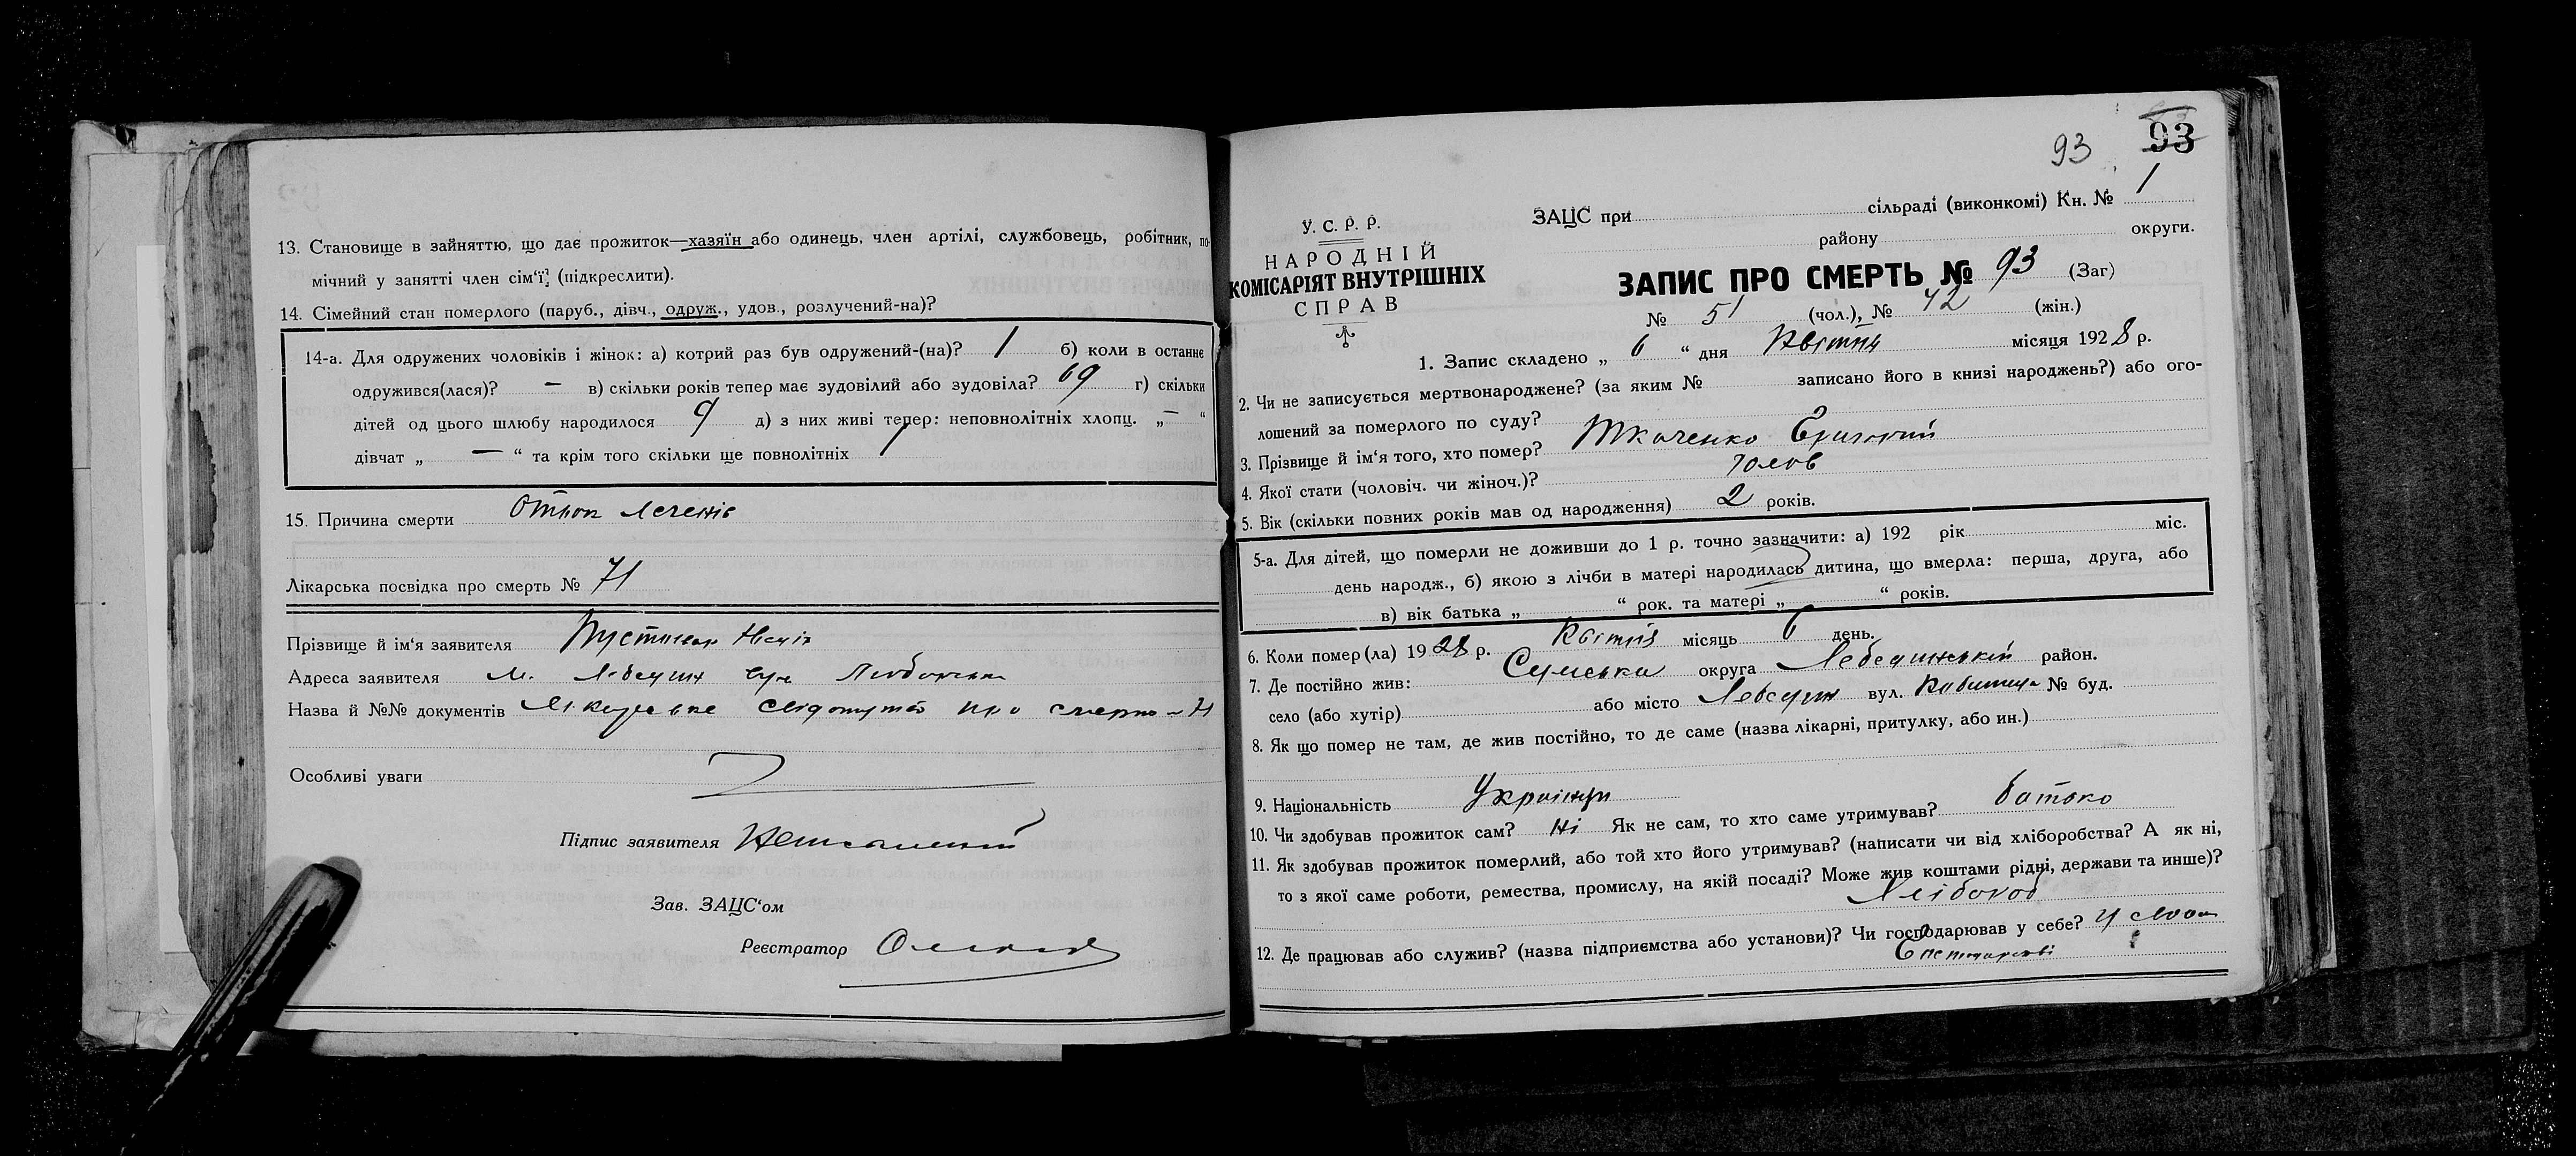 13. Становище в зайняттю, що дає прожиток—хазяїн або одинець, член артілі, службовець, робітник, по-
мічний у занятті член сім'ї? (підкреслити).
14. Сімейний стан померлого (паруб., дівч., одруж., удов., розлучений-на)?
14-а. Для одружених чоловіків і жінок: а) котрий раз був одружений-(на)? 1 б) коли в останнє
одружився(лася)? — в) скільки років тепер має зудовілий або зудовіла? 69 г) скільки
дітей од цього шлюбу народилося 9 д) з них живі тепер: неповнолітніх хлопц. „ — “
дівчат „ — “ та крім того скільки ще повнолітніх 1
15. Причина смерти
Лікарська посвідка про смерть № 71
Прізвище й ім'я заявителя
Адреса заявителя м. Лебедин вул.
Назва й №№ документів про смерть - 71
Особливі уваги
Підпис заявителя Неписьменний
Зав. ЗАЦС'ом
Реєстратор
93 93
У. С. Р. Р.
НАРОДНІЙ
КОМІСАРІЯТ ВНУТРІШНІХ
СПРАВ
ЗАЦС при сільраді (виконкомі) Кн. № 1
району округи.
ЗАПИС ПРО СМЕРТЬ № 93 (Заг)
№ 51 (чол.), № 42 (жін.)
1. Запис складено „ 6 “ дня Квітня місяця 1928 р.
2. Чи не записується мертвонароджене? (за яким № записано його в книзі народжень?) або ого-
лошений за померлого по суду?
3. Прізвище й ім'я того, хто помер? Ткаченко Григорий
4. Якої стати (чоловіч. чи жіноч.)? чолов
5. Вік (скільки повних років мав од народження) 2 років.
5-а. Для дітей, що померли не доживши до 1 р. точно зазначити: а) 192 рік міс.
день народж., б) якою з лічби в матері народилась дитина, що вмерла: перша, друга, або
в) вік батька „ “ рок. та матері „ “ років.
6. Коли помер(ла) 1928 р. Квітня місяць 6 день.
7. Де постійно жив: Сумська округа Лебединський район.
село (або хутір) або місто Лебедин вул. № буд.
8. Як що помер не там, де жив постійно, то де саме (назва лікарні, притулку, або ин.)
9. Національність Українец
10. Чи здобував прожиток сам? Ні Як не сам, то хто саме утримував? батько
11. Як здобував прожиток померлий, або той хто його утримував? (написати чи від хліборобства? А як ні,
то з якої саме роботи, ремества, промислу, на якій посаді? Може жив коштами рідні, держави та инше)?
Хлібороб
12. Де працював або служив? (назва підприємства або установи)? Чи господарював у себе? У свом
Господарстві